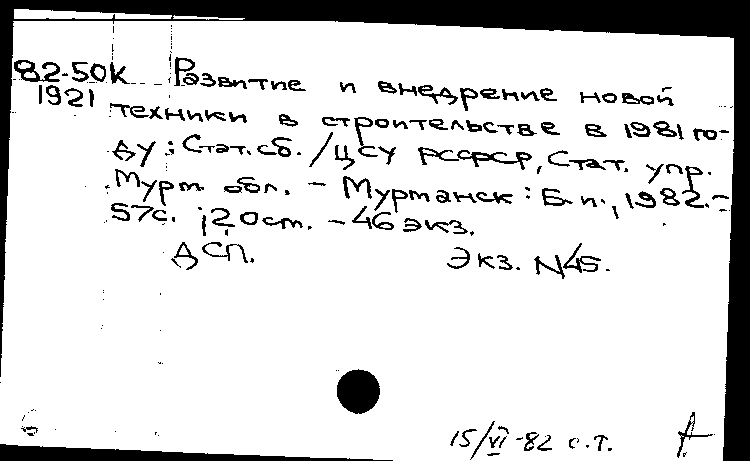 82-50к Развитие и внедрение новой
1921 техники в строительстве в 1981 го-
ду : Стат. сб. / ЦСУ РСФСР, Стат. упр.
Мурм. обл. - Мурманск : Б. и., 1982. -
57с. ; 20 см. - 46 экз.
ДСП. Экз. N45.
6 15/VI-82 с.т. А